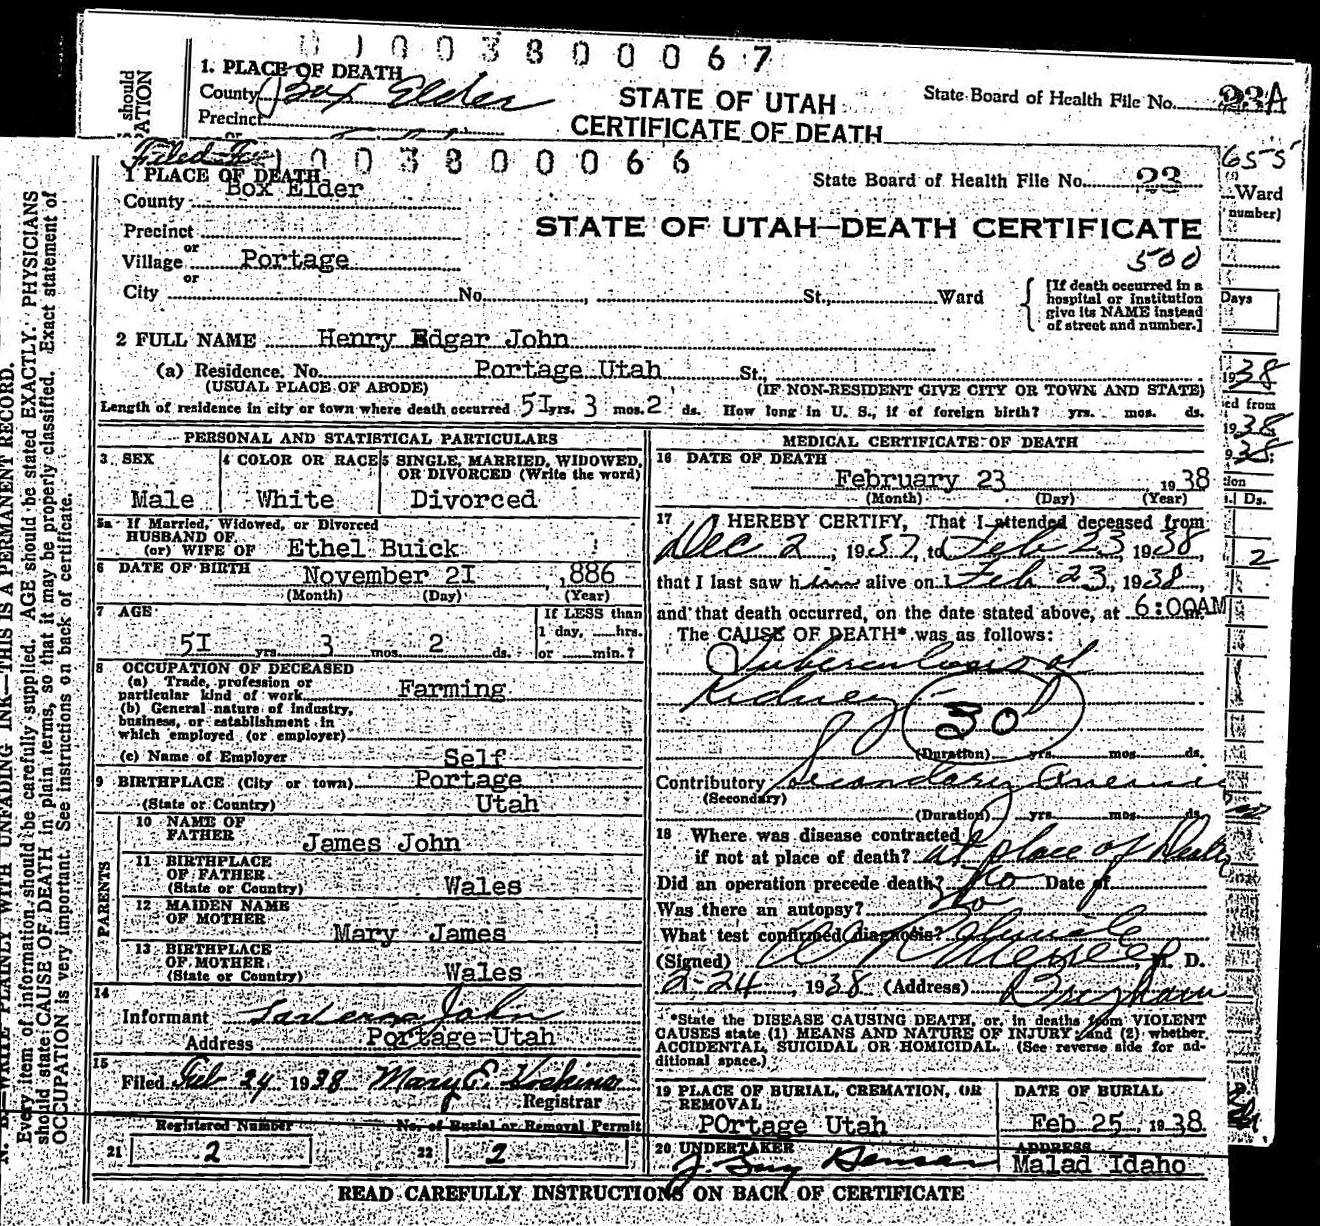 0 1 0 0 3 8 0 0 0 6 7
1. PLACE OF DEATH
County Box Elder
Precinct
or
STATE OF UTAH
CERTIFICATE OF DEATH
State Board of Health File No. 23A
should
ATION
Filed Fe
1 0 0 3 8 0 0 0 6 6
1 PLACE OF DEATH
County Box Elder
State Board of Health File No. 23
STATE OF UTAH—DEATH CERTIFICATE
500
Precinct
or
Village Portage
or
City No. , St., Ward
[If death occurred in a
hospital or institution
give its NAME instead
of street and number.]
2 FULL NAME Henry Edgar John
(a) Residence. No. Portage Utah St.,
(USUAL PLACE OF ABODE) (IF NON-RESIDENT GIVE CITY OR TOWN AND STATE)
Length of residence in city or town where death occurred 5I yrs. 3 mos. 2 ds. How long in U. S., if of foreign birth? yrs. mos. ds.
PERSONAL AND STATISTICAL PARTICULARS
3 SEX
Male
4 COLOR OR RACE
White
5 SINGLE, MARRIED, WIDOWED,
OR DIVORCED (Write the word)
Divorced
5a If Married, Widowed, or Divorced
HUSBAND OF
(or) WIFE OF Ethel Buick
6 DATE OF BIRTH November 2I , 1886
(Month) (Day) (Year)
7 AGE
5I yrs 3 mos. 2 ds.
If LESS than
1 day, hrs.
or min.?
8 OCCUPATION OF DECEASED
(a) Trade, profession or
particular kind of work Farming
(b) General nature of industry,
business, or establishment in
which employed (or employer)
(c) Name of Employer Self
9 BIRTHPLACE (City or town) Portage
(State or Country) Utah
PARENTS
10 NAME OF
FATHER James John
11 BIRTHPLACE
OF FATHER
(State or Country) Wales
12 MAIDEN NAME
OF MOTHER Mary James
13 BIRTHPLACE
OF MOTHER
(State or Country) Wales
14
Informant John
Address Portage Utah
15
Filed Feb 24 1938 Mary E. Hoskins
Registrar
Registered Number
21 2
No. of Burial or Removal Permit
22 2
MEDICAL CERTIFICATE OF DEATH
16 DATE OF DEATH
February 23 , 1938
(Month) (Day) (Year)
17 I HEREBY CERTIFY, That I attended deceased from
Dec 2 , 1937, to Feb 23 1938,
that I last saw him alive on Feb 23, 1938,
and that death occurred, on the date stated above, at 6:00AM m.
The CAUSE OF DEATH* was as follows:
Tuberculosis of
Kidney
30
(Duration) yrs. mos. ds.
Contributory Secondary Anemia
(Secondary)
(Duration) yrs. mos. ds.
18 Where was disease contracted
if not at place of death? at place of Death
Did an operation precede death? No Date of
Was there an autopsy? No
What test confirmed diagnosis? Clinical
(Signed) M. D.
2-24, 1938 (Address) Brigham
*State the DISEASE CAUSING DEATH, or, in deaths from VIOLENT
CAUSES state (1) MEANS AND NATURE OF INJURY and (2) whether
ACCIDENTAL, SUICIDAL OR HOMICIDAL. (See reverse side for ad-
ditional space.)
19 PLACE OF BURIAL, CREMATION, OR
REMOVAL
POrtage Utah
DATE OF BURIAL
Feb 25, 1938
20 UNDERTAKER
J. Guy
ADDRESS
Malad Idaho
READ CAREFULLY INSTRUCTIONS ON BACK OF CERTIFICATE
N. B.—WRITE PLAINLY WITH UNFADING INK—THIS IS A PERMANENT RECORD.
Every item of information should be carefully supplied. AGE should be stated EXACTLY. PHYSICIANS
should state CAUSE OF DEATH in plain terms, so that it may be properly classified. Exact statement of
OCCUPATION is very important. See instructions on back of certificate.
655
Ward
number]
Days
1938
ed from
1938
38
tion
Ds.
2